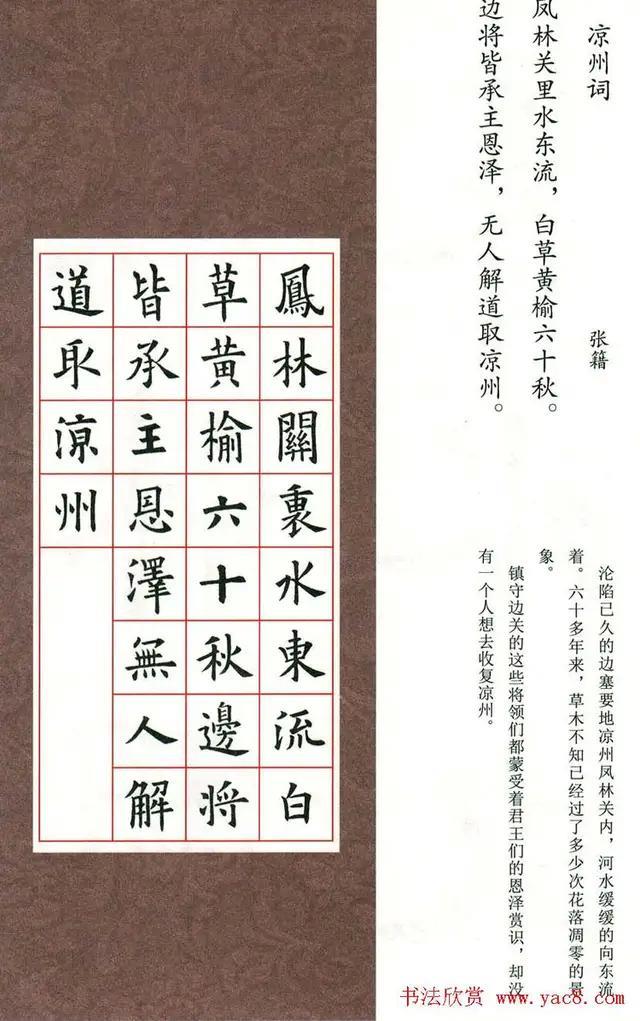 凉州词
张籍
凤林关里水东流，白草黄榆六十秋。
边将皆承主恩泽，无人解道取凉州。
沦陷已久的边塞要地凉州凤林关内，河水缓缓的向东流
着。六十多年来，草木不知已经过了多少次花落凋零的景
象。
镇守边关的这些将领们都蒙受着君王们的恩泽赏识，却没
有一个人想去收复凉州。
鳳林關裏水東流白
草黃榆六十秋邊將
皆承主恩澤無人解
道取涼州
书法欣赏 www.yac8.com